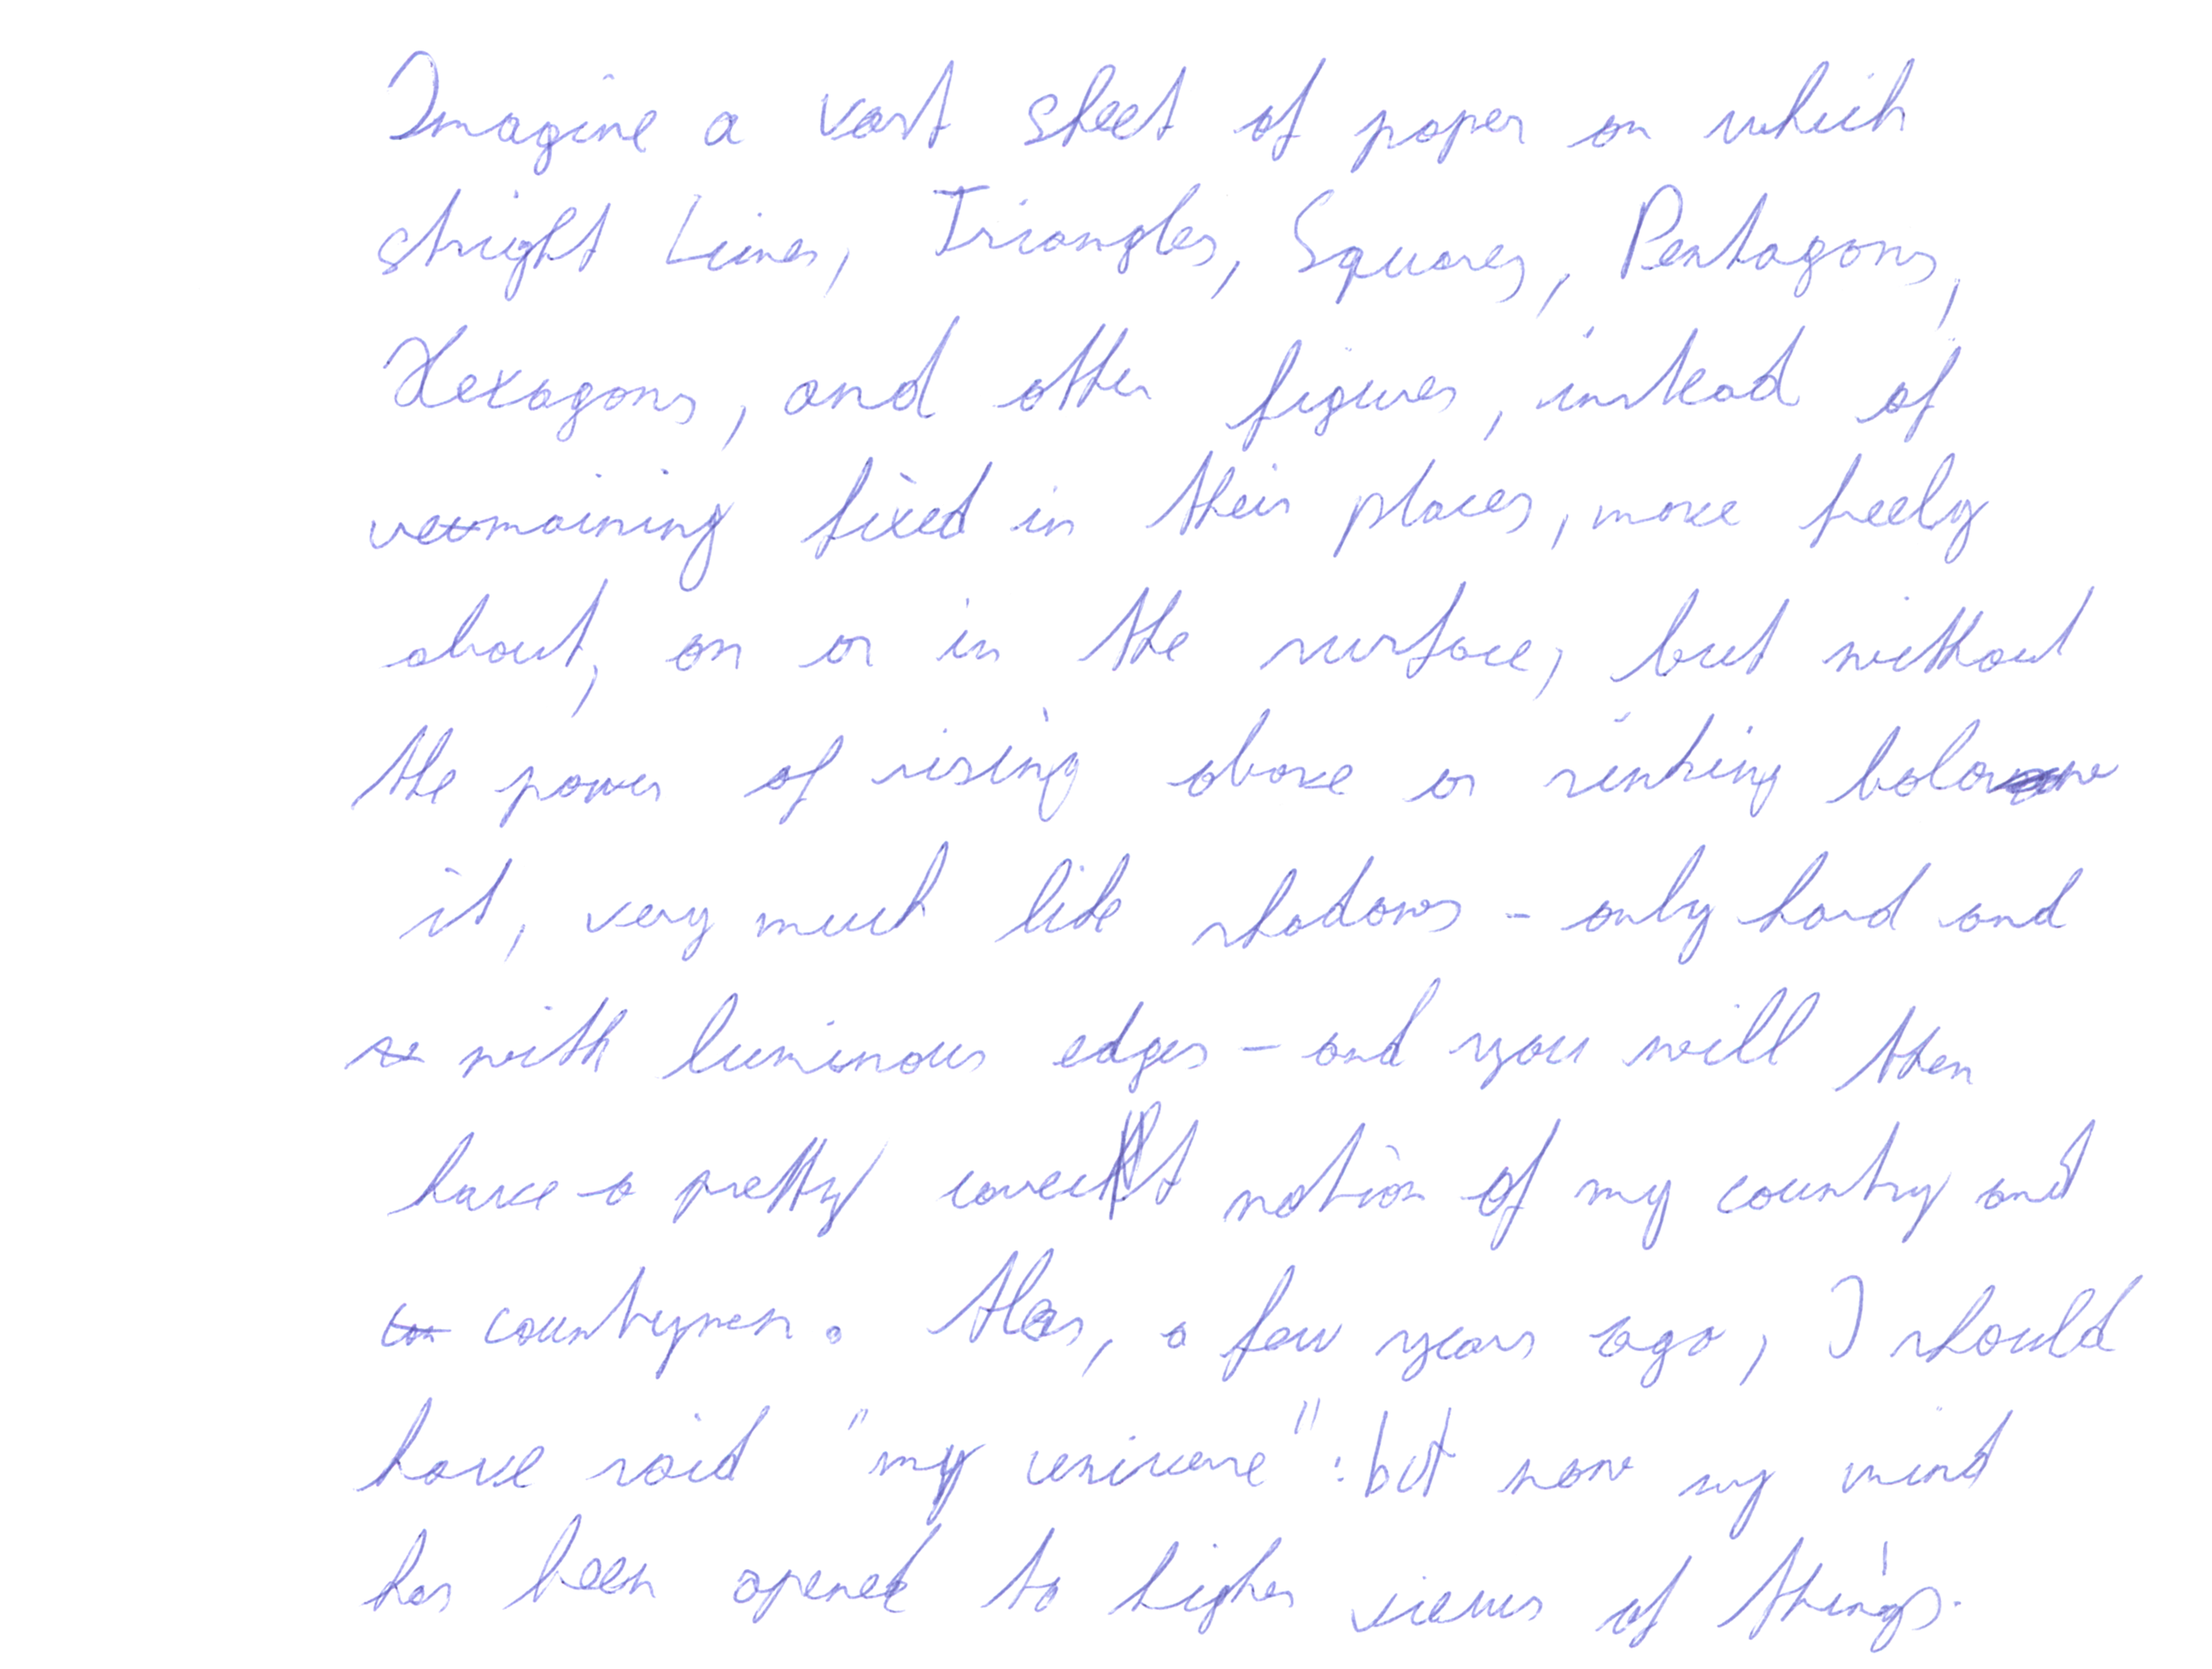 Imagine a vast sheet of paper on which
stright Lines, Triangles, Squares, Pentagons,
Hexagons, and other figures, instead of
remaining fixed in their places, move freely
about, on or in the surface, but without
the power of rising above or sinking below
it, very much like shadows - only hard and
with luminous edges - and you will then
have a pretty correct notion of my country and
countrymen. Alas, a few years ago, I should
have said "my universe": but now my mind
has been opened to higher views of things.